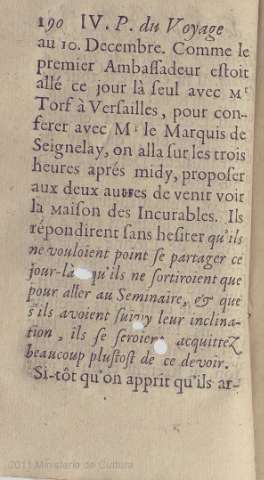 190 IV. P. du Voyage
au 10. Decembre. Comme le
premier Ambassadeur estoit
allé ce jour là seul avec Mr
Torf à Versailles, pour con-
ferer avec Mr le Marquis de
Seignelay, on alla sur les trois
heures aprés midy, proposer
aux deux autres de venir voir
la Maison des Incurables. Ils
répondirent sans hesiter qu'ils
ne vouloient point se partager ce
jour-là qu'ils ne sortiroient que
pour aller au Seminaire, & que
s'ils avoient suivy leur inclina-
tion, ils se seroient acquittez
beaucoup plustost de ce devoir.
Si-tôt qu'on apprit qu'ils ar-
2011 Ministerio de Cultura